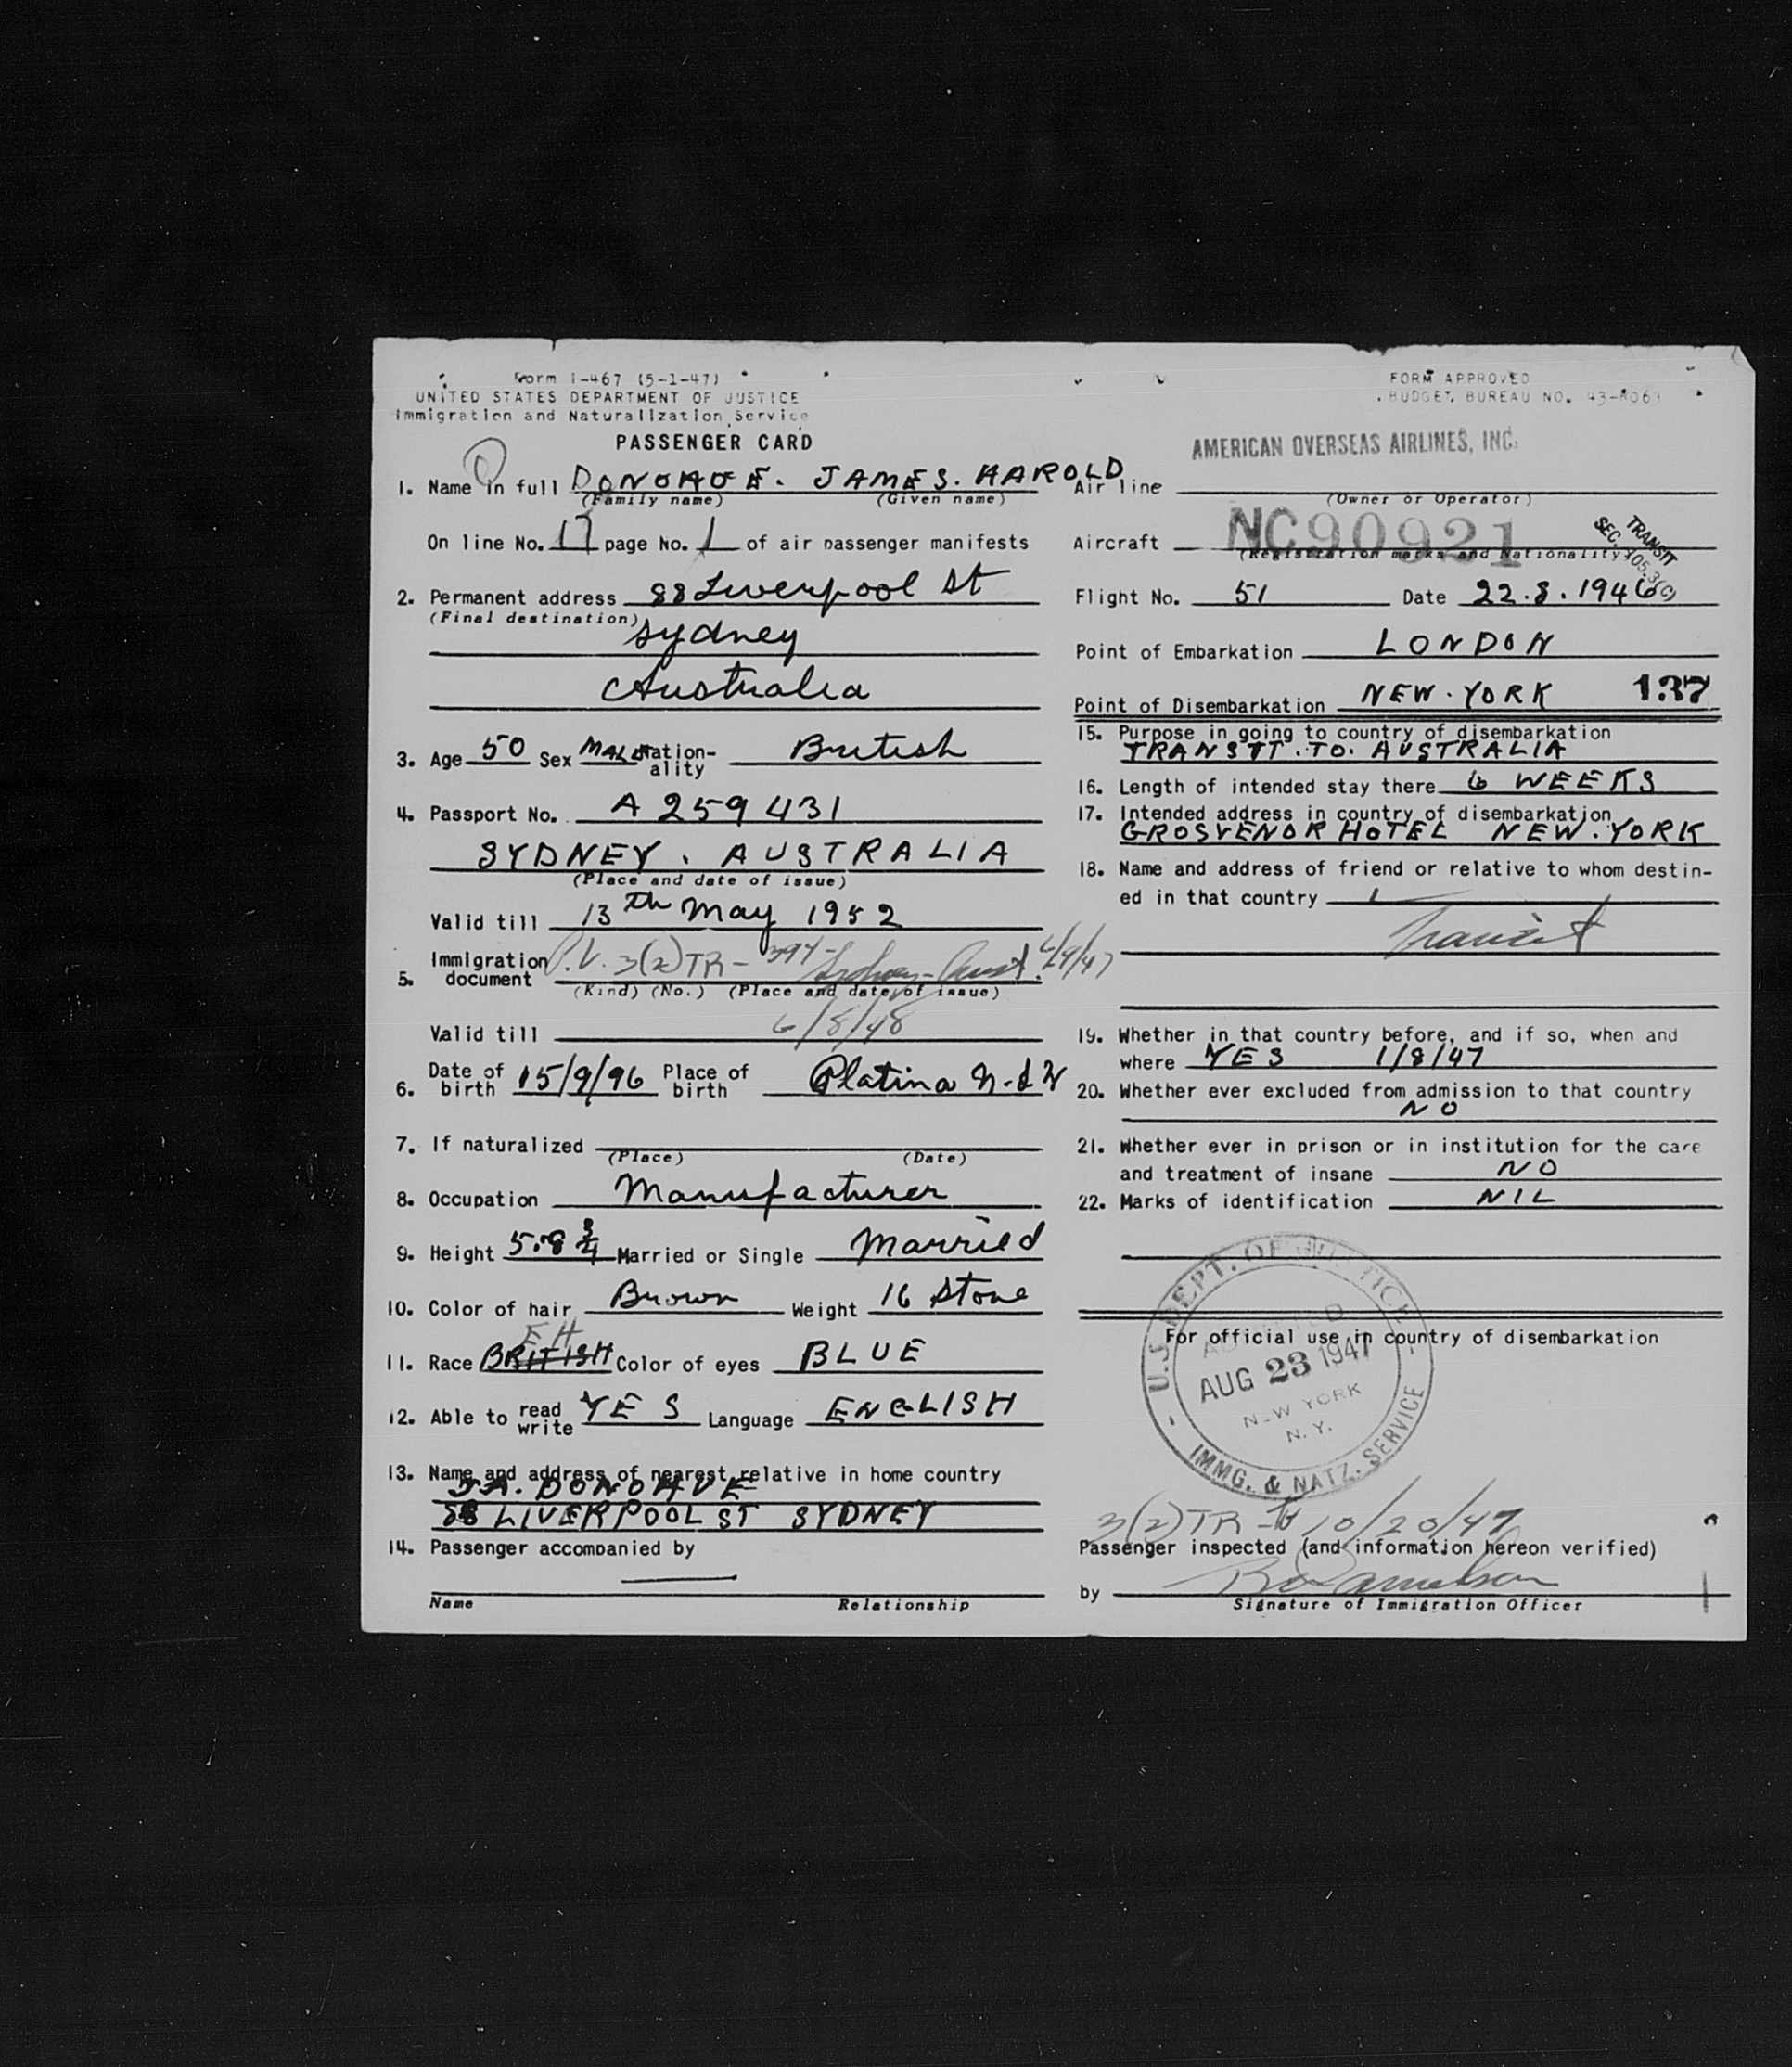 Form I-467 (5-1-47)
UNITED STATES DEPARTMENT OF JUSTICE
Immigration and Naturalization Service
PASSENGER CARD
1. Name in full DONOHOE. JAMES. HAROLD
(Family name) (Given name)
On line No. 17 page No. 1 of air passenger manifests
2. Permanent address 88 Liverpool St
(Final destination) Sydney
Australia
3. Age 50 Sex MALE Nationality British
4. Passport No. A 259431
SYDNEY. AUSTRALIA
(Place and date of issue)
Valid till 13th May 1952
5. Immigration document P.V. 3(2)TR- 394- Sydney-Aust.
(Kind) (No.) (Place and date of issue)
Valid till 6/8/48
6. Date of birth 15/9/96 Place of birth Platina N.S.W
7. If naturalized
(Place) (Date)
8. Occupation Manufacturer
9. Height 5.8 3/4 Married or Single Married
10. Color of hair Brown Weight 16 Stone
EH
11. Race BRITISH Color of eyes BLUE
12. Able to read write YES Language ENGLISH
13. Name and address of nearest relative in home country
J.A. DONOHUE
88 LIVERPOOL ST SYDNEY
14. Passenger accompanied by
Name Relationship
FORM APPROVED
BUDGET BUREAU NO. 43-R063
AMERICAN OVERSEAS AIRLINES, INC.
Air line
(Owner or Operator)
Aircraft NC90921
(Registration marks and Nationality)
TRANSIT
SEC. 105.3(c)
Flight No. 51 Date 22.8.1946
Point of Embarkation LONDON
Point of Disembarkation NEW.YORK 137
15. Purpose in going to country of disembarkation
TRANSIT.TO.AUSTRALIA
16. Length of intended stay there 6 WEEKS
17. Intended address in country of disembarkation
GROSVENOR HOTEL NEW.YORK
18. Name and address of friend or relative to whom destin-
ed in that country
Transit
19. Whether in that country before, and if so, when and
where YES 1/8/47
20. Whether ever excluded from admission to that country
NO
21. Whether ever in prison or in institution for the care
and treatment of insane NO
22. Marks of identification NIL
For official use in country of disembarkation
U.S. DEPT. OF JUSTICE
ADMITTED
AUG 23 1947
NEW YORK
N.Y.
IMMG. & NATZ. SERVICE
3(2)TR-to 10/20/47
Passenger inspected (and information hereon verified)
by
Signature of Immigration Officer